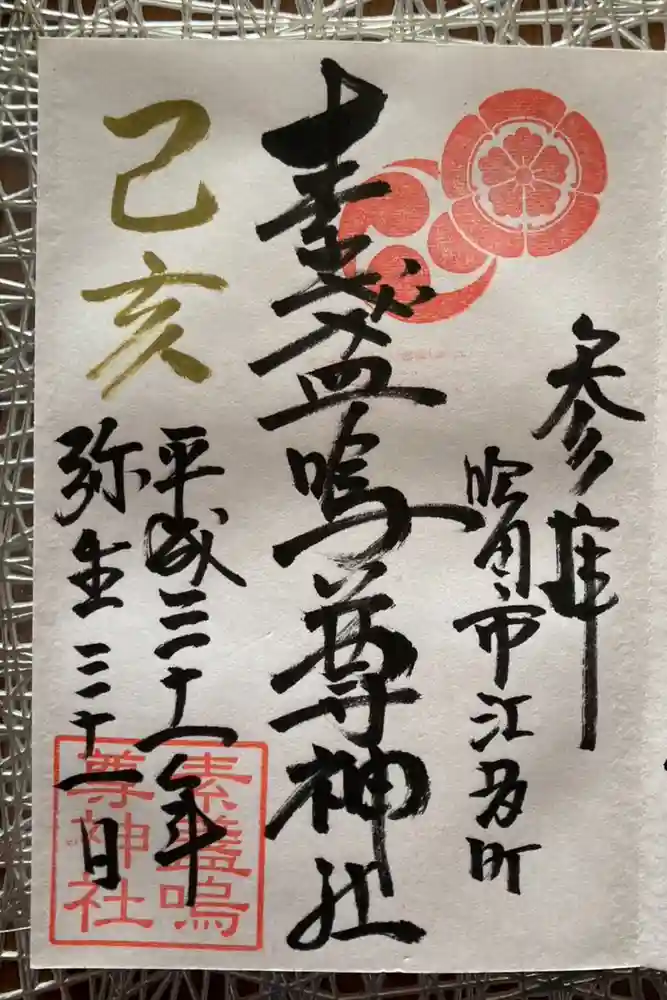 参拝
吹田市江坂町
素盞嗚尊神社
平成三十一年
弥生三十一日
己亥
素盞嗚
尊神社